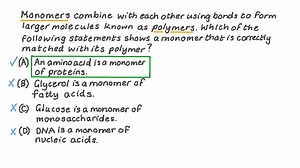 Monomers combine with each other using bonds to form
larger molecules known as polymers. Which of the
following statements shows a monomer that is correctly
matched with its polymer?
✓(A) An amino acid is a monomer
of proteins.
X(B) Glycerol is a monomer of
fatty acids.
X(C) Glucose is a monomer of
monosaccharides.
X(D) DNA is a monomer of
nucleic acids.